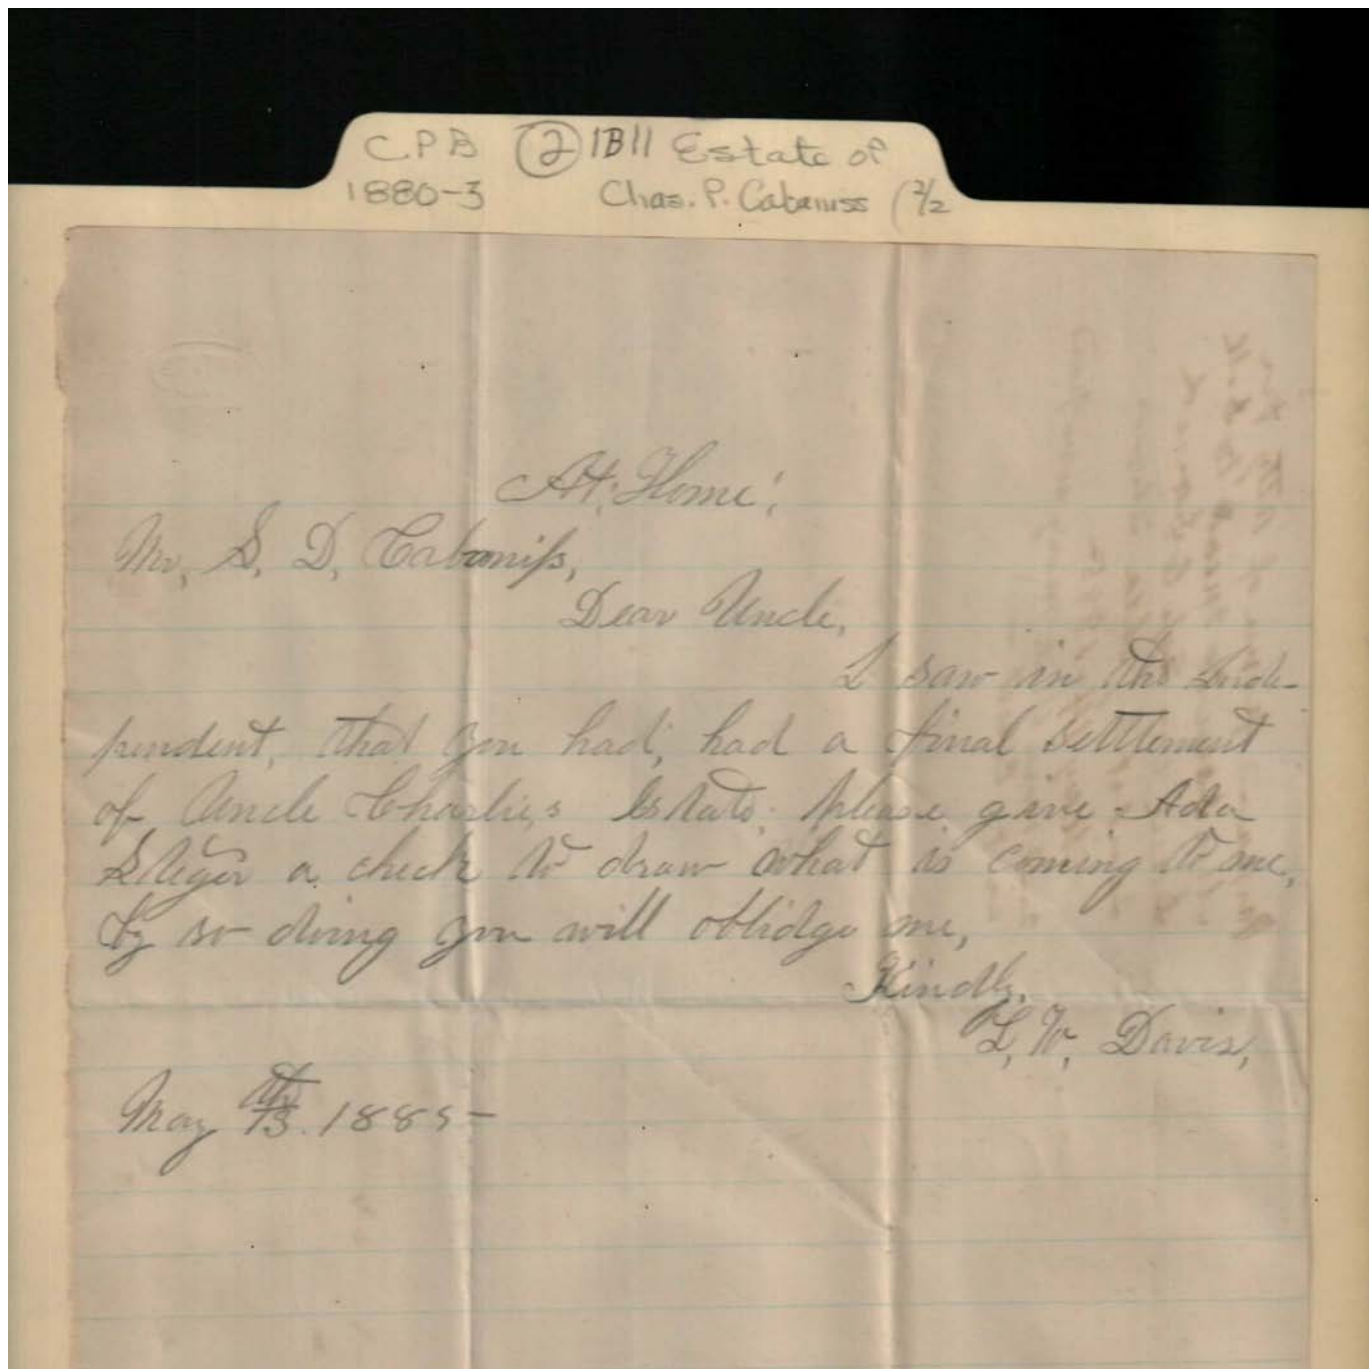 C.P.B ② 1B11 Estate of
1880-3 Chas. P. Cabaniss (2/2
At, Home,
Mr, S, D, Cabaniss,
Dear Uncle,
I saw in the Inde-
pendent, that you had, had a final settlement
of Uncle Charlie,s Estate; please give Ada
Steger a check to draw what is coming to me,
By so doing you will oblidge me,
Kindly,
L, W, Davis,
May 13th. 1885-